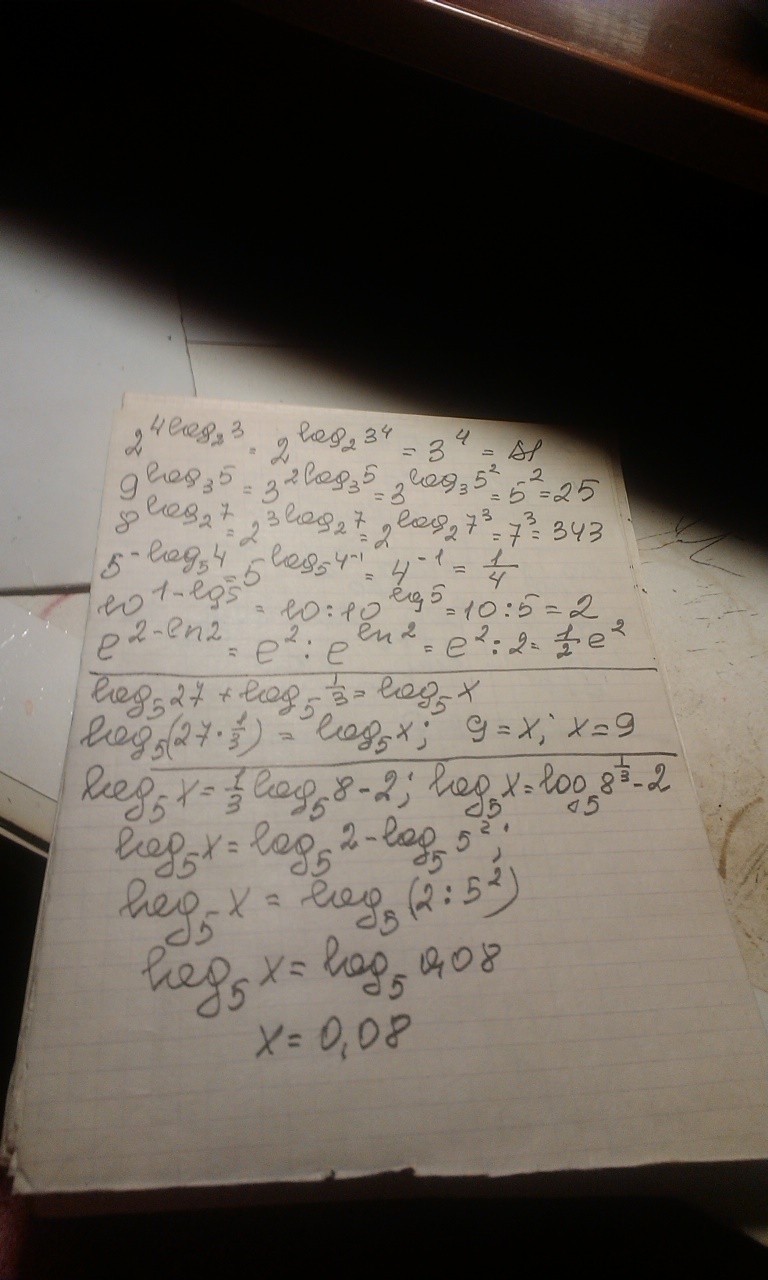 2^(4log₂3) = 2^(log₂3⁴) = 3⁴ = 81
9^(log₃5) = 3^(2log₃5) = 3^(log₃5²) = 5² = 25
8^(log₂7) = 2^(3log₂7) = 2^(log₂7³) = 7³ = 343
5^(-log₅4) = 5^(log₅4⁻¹) = 4⁻¹ = 1/4
10^(1-lg5) = 10 : 10^(lg5) = 10 : 5 = 2
e^(2-ln2) = e² : e^(ln2) = e² : 2 = 1/2 e²
log₅27 + log₅1/3 = log₅x
log₅(27·1/3) = log₅x; 9 = x; x = 9
log₅x = 1/3 log₅8 - 2; log₅x = log₅8^(1/3) - 2
log₅x = log₅2 - log₅5²;
log₅x = log₅(2 : 5²)
log₅x = log₅0,08
x = 0,08